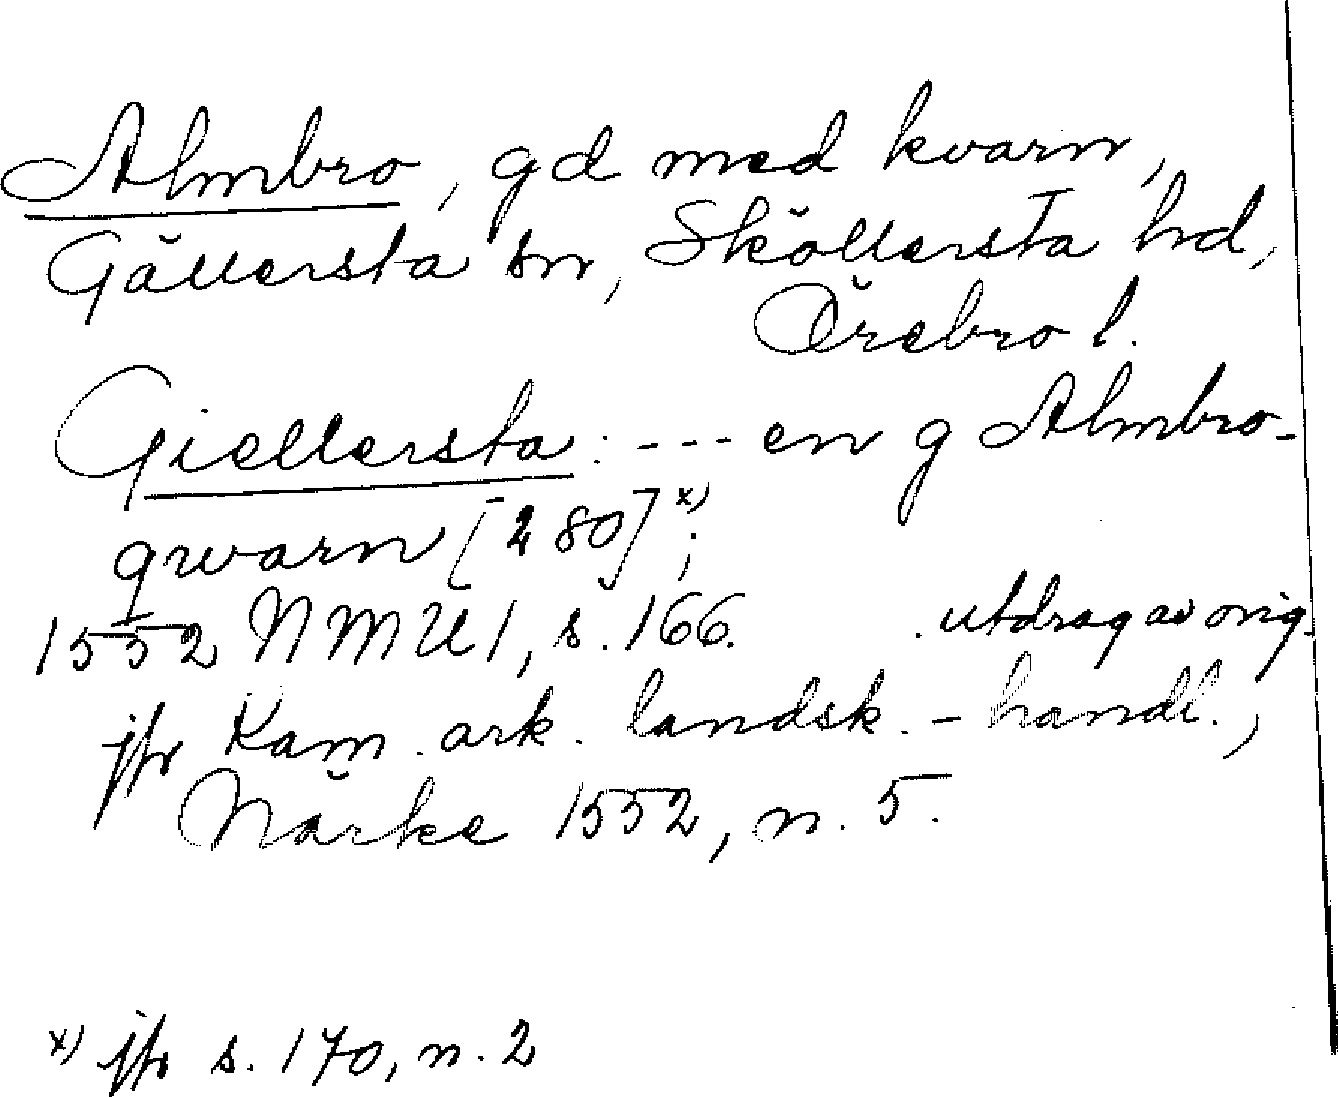 Almbro, gd med kvarn,
Gällersta sn, Sköllersta hd,
Örebro l.
Giellersta: --- en g Almbro-
qwarn [280]x);
1552 NMU 1, s. 166. utdrag av orig.
jfr Kam. ark. landsk.-handl.,
Närke 1552, n. 5.
x) jfr s. 170, n. 2